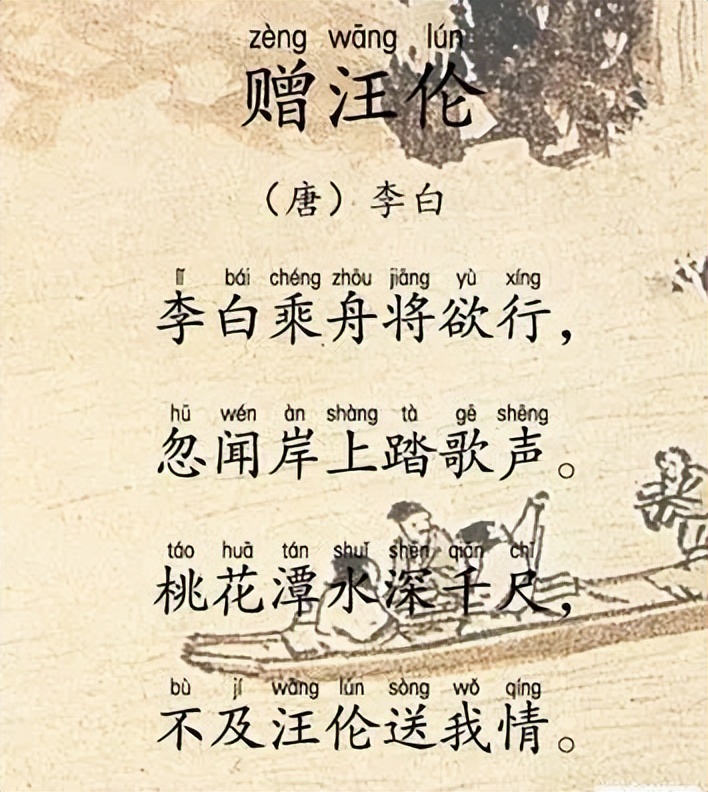 zèng wāng lún
赠汪伦
（唐）李白
lǐ bái chéng zhōu jiāng yù xíng
李白乘舟将欲行，
hū wén àn shàng tà gē shēng
忽闻岸上踏歌声。
táo huā tán shuǐ shēn qiān chǐ
桃花潭水深千尺，
bù jí wāng lún sòng wǒ qíng
不及汪伦送我情。